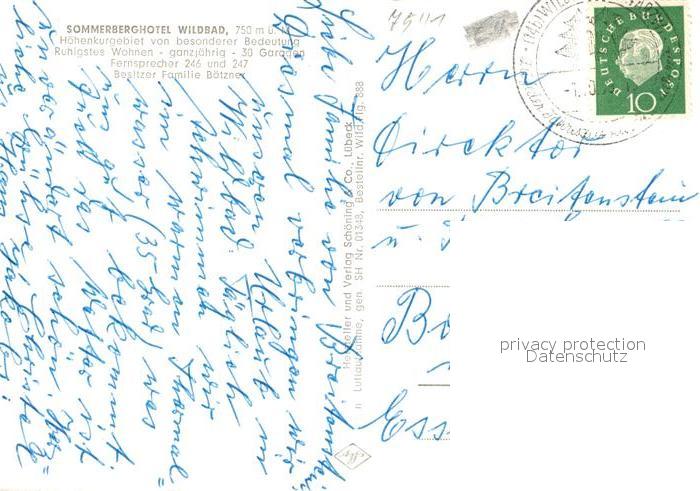 SOMMERBERGHOTEL WILDBAD, 750 m ü. M.
Höhenkurgebiet von besonderer Bedeutung
Ruhigstes Wohnen - ganzjährig - 30 Garagen
Fernsprecher 246 und 247
Besitzer Familie Bötzner
Liebe Familie von Breitenstein,
Diesmal verbringen wir
unseren Urlaub in
Wildbad. Täglich
schwimmen wir
im warmen Thermal"
wasser (35 Grad) was
uns gut bekommt
Das Wetter ist
unverändert schön.
Herz"
liche Grüße
Hersteller und Verlag Schöning & Co., Lübeck
Luftaufnahme, gen. SH Nr. 01348, Bestellnr. Wild. lg. 888
Herrn
Direktor
von Breitenstein
u.
Bo
Ess
DEUTSCHE BUNDESPOST
10
WILDBAD
privacy protection
Datenschutz